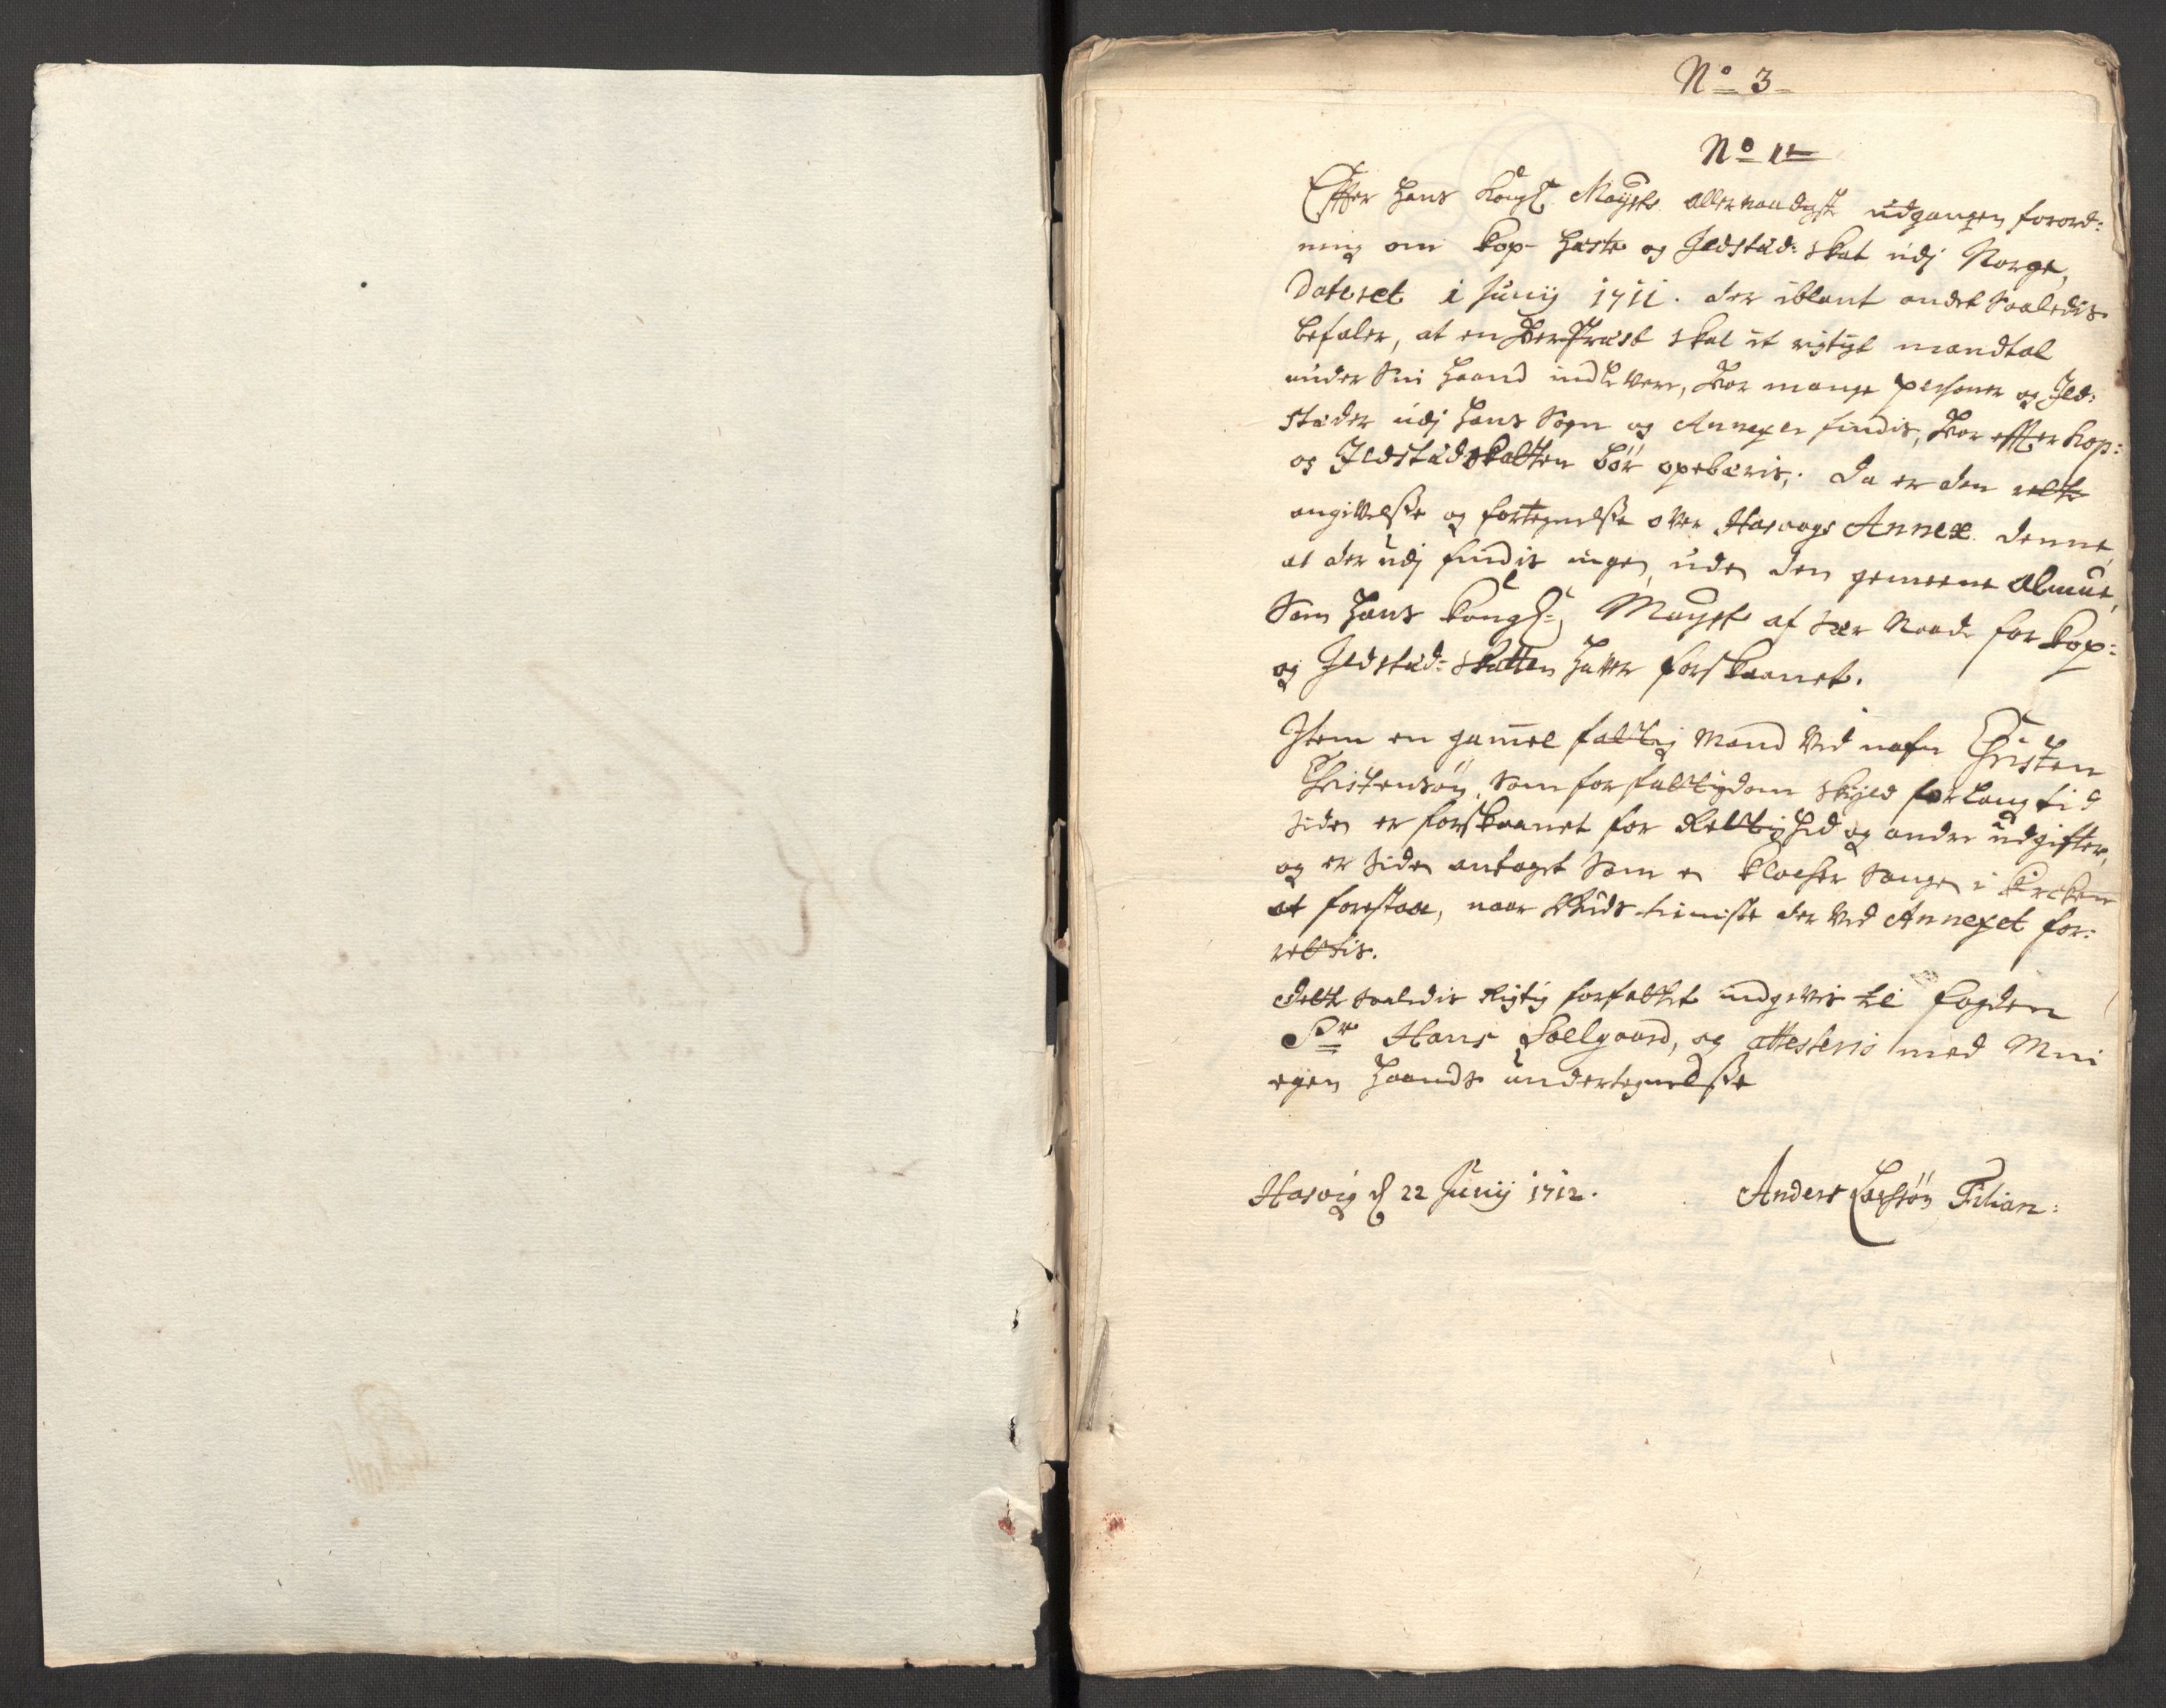 No 3
No 1
Efter Hans Kongl Mayts allernaadigste udgangen forord:
ning om Kop- Heste og Ildstæd: skat udj Norge,
Dateret 1 Junij 1711. der iblant andet Saaledis
befaler, at en hver Præst skal it rigtigt mandtal
under Sin Haand indlevere, Hvor mange personer og Ild:
stæder udj Hans Sogn og Annexer findis, Hvor effter Kop:
og Ildstædskatten bør opebæris; Da er den rette
angivelsse og fortegnelsse over Hasvogs Annex denne,
at der udj findis ingen, uden den gemeene Almue,
Som Hans Kongl: Mayst af Sær Naade for Kop:
og Ildstæd: Skatten Haver forskaanet.
Item en gammel fattig Mand Ved nafn Christen
Christensøn, Som for fattigdom skyld for lang tid
siden er forskaanet for Rettighed og andre udgifter,
og er siden antaget Som en Klocher Sangen i Kircken
at forestaae, naar Guds tieniste der Ved Annexet for:
rettis.
Dette saaledis Rigtig forfattet indgivis til fogden
Sr Hans Soelgaard, og attesteris med Min
egen Haands undertegnelsse
Hasvig d 22 Junij 1712. Anders Larssøn Filian: